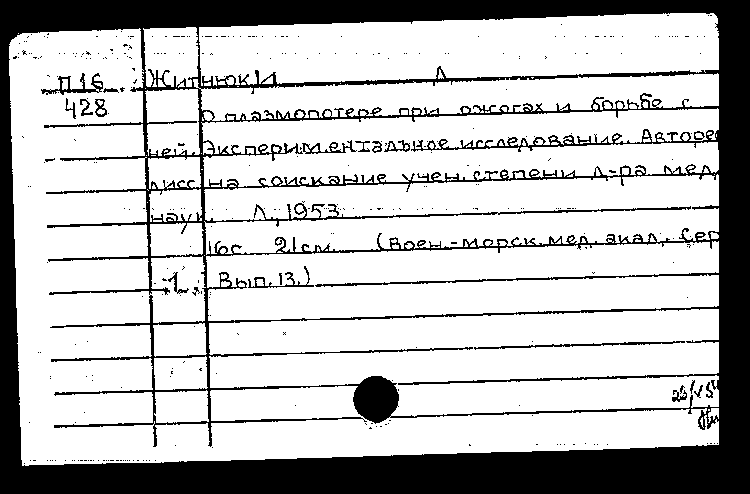 П16 Житнюк, И Д
428 О плазмопотере при ожогах и борьбе с
ней. Экспериментальное исследование. Авторе
дисс на соискание учен. степени д-ра мед.
наук. Л., 1953.
16с. 21см. (Воен.-морск. мед. акад. Сер
1. Вып. 13.)